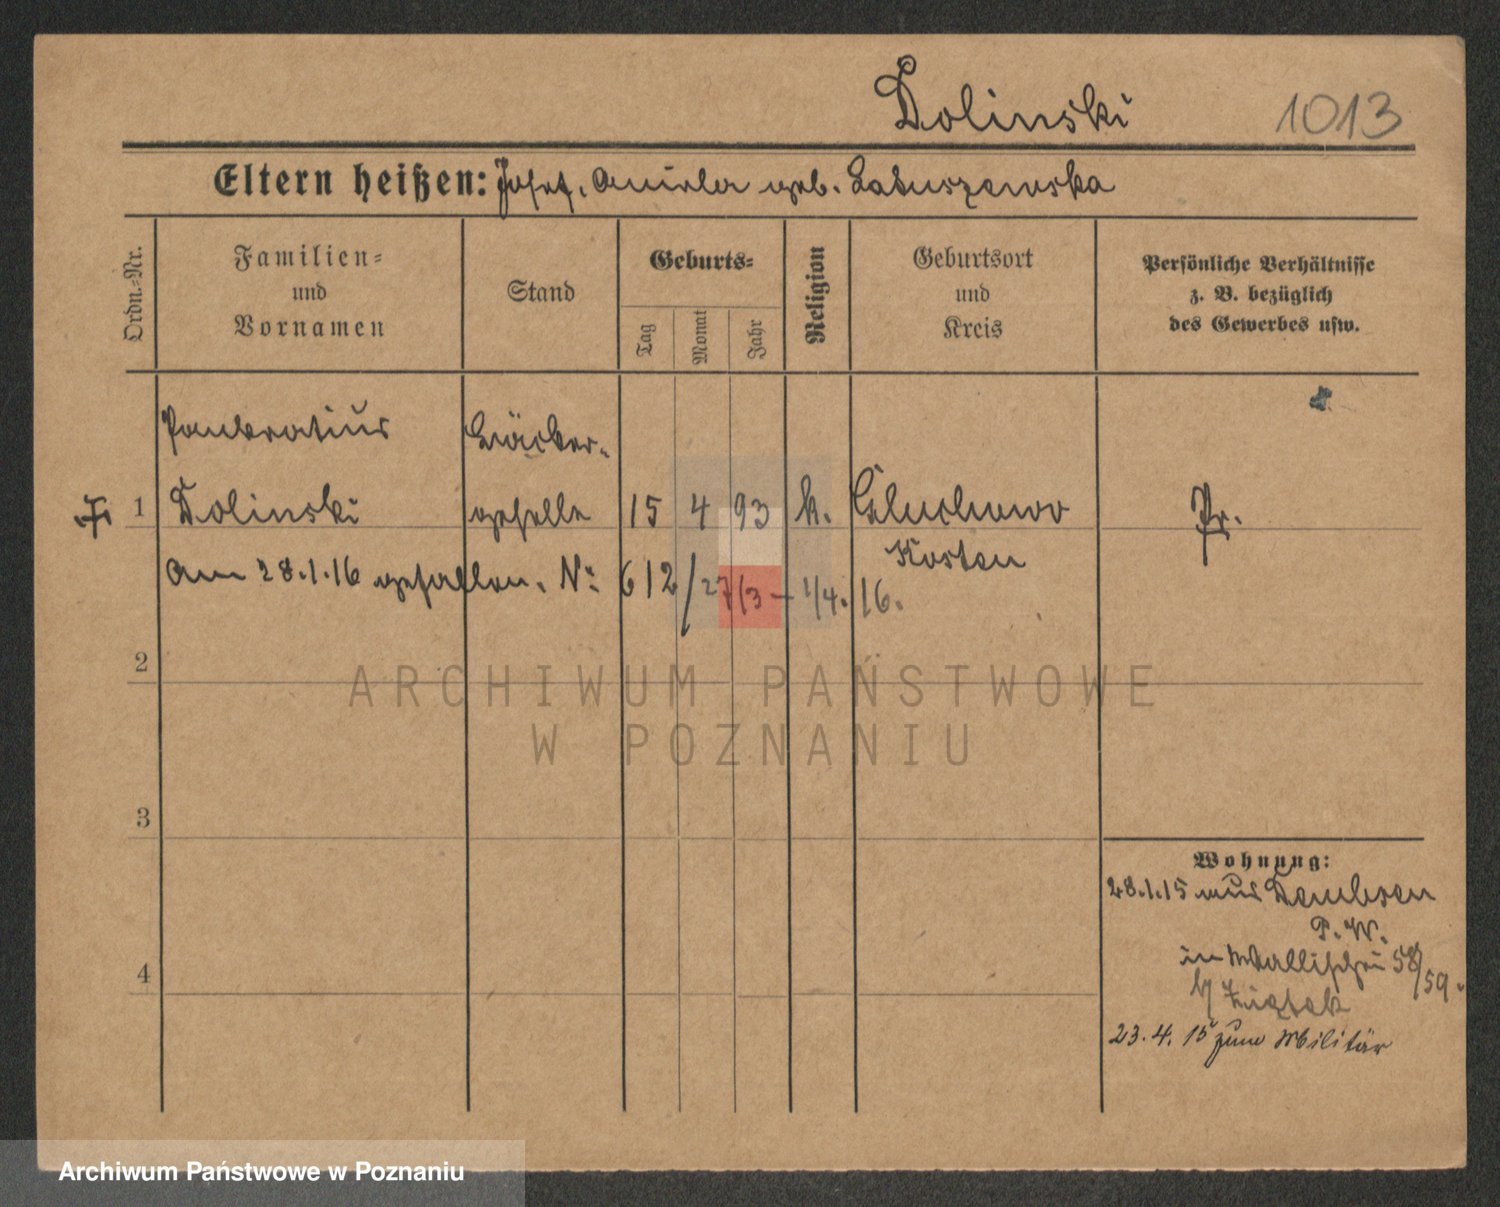 Dolinski 1013
Eltern heißen: Josef, Aniela geb. Latuszewska
Ordn.-Nr.
Familien-
und
Vornamen
Stand
Geburts-
Tag
Monat
Jahr
Religion
Geburtsort
und
Kreis
Persönliche Verhältnisse
z. B. bezüglich
des Gewerbes usw.
Pankratius Bäcker-
1 Dolinski geselle 15 4 93 k. Gluchowo Pr.
Kosten
Am 28.1.16 gefallen. N: 612/27/3 – 1/4. 16.
2
ARCHIWUM PAŃSTWOWE
W POZNANIU
3
Wohnung:
28.1.15 aus Dembsen
P. W.
in Wallischei 58/59.
b/
4
23.4.15 zum Militär
Archiwum Państwowe w Poznaniu